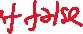 if false